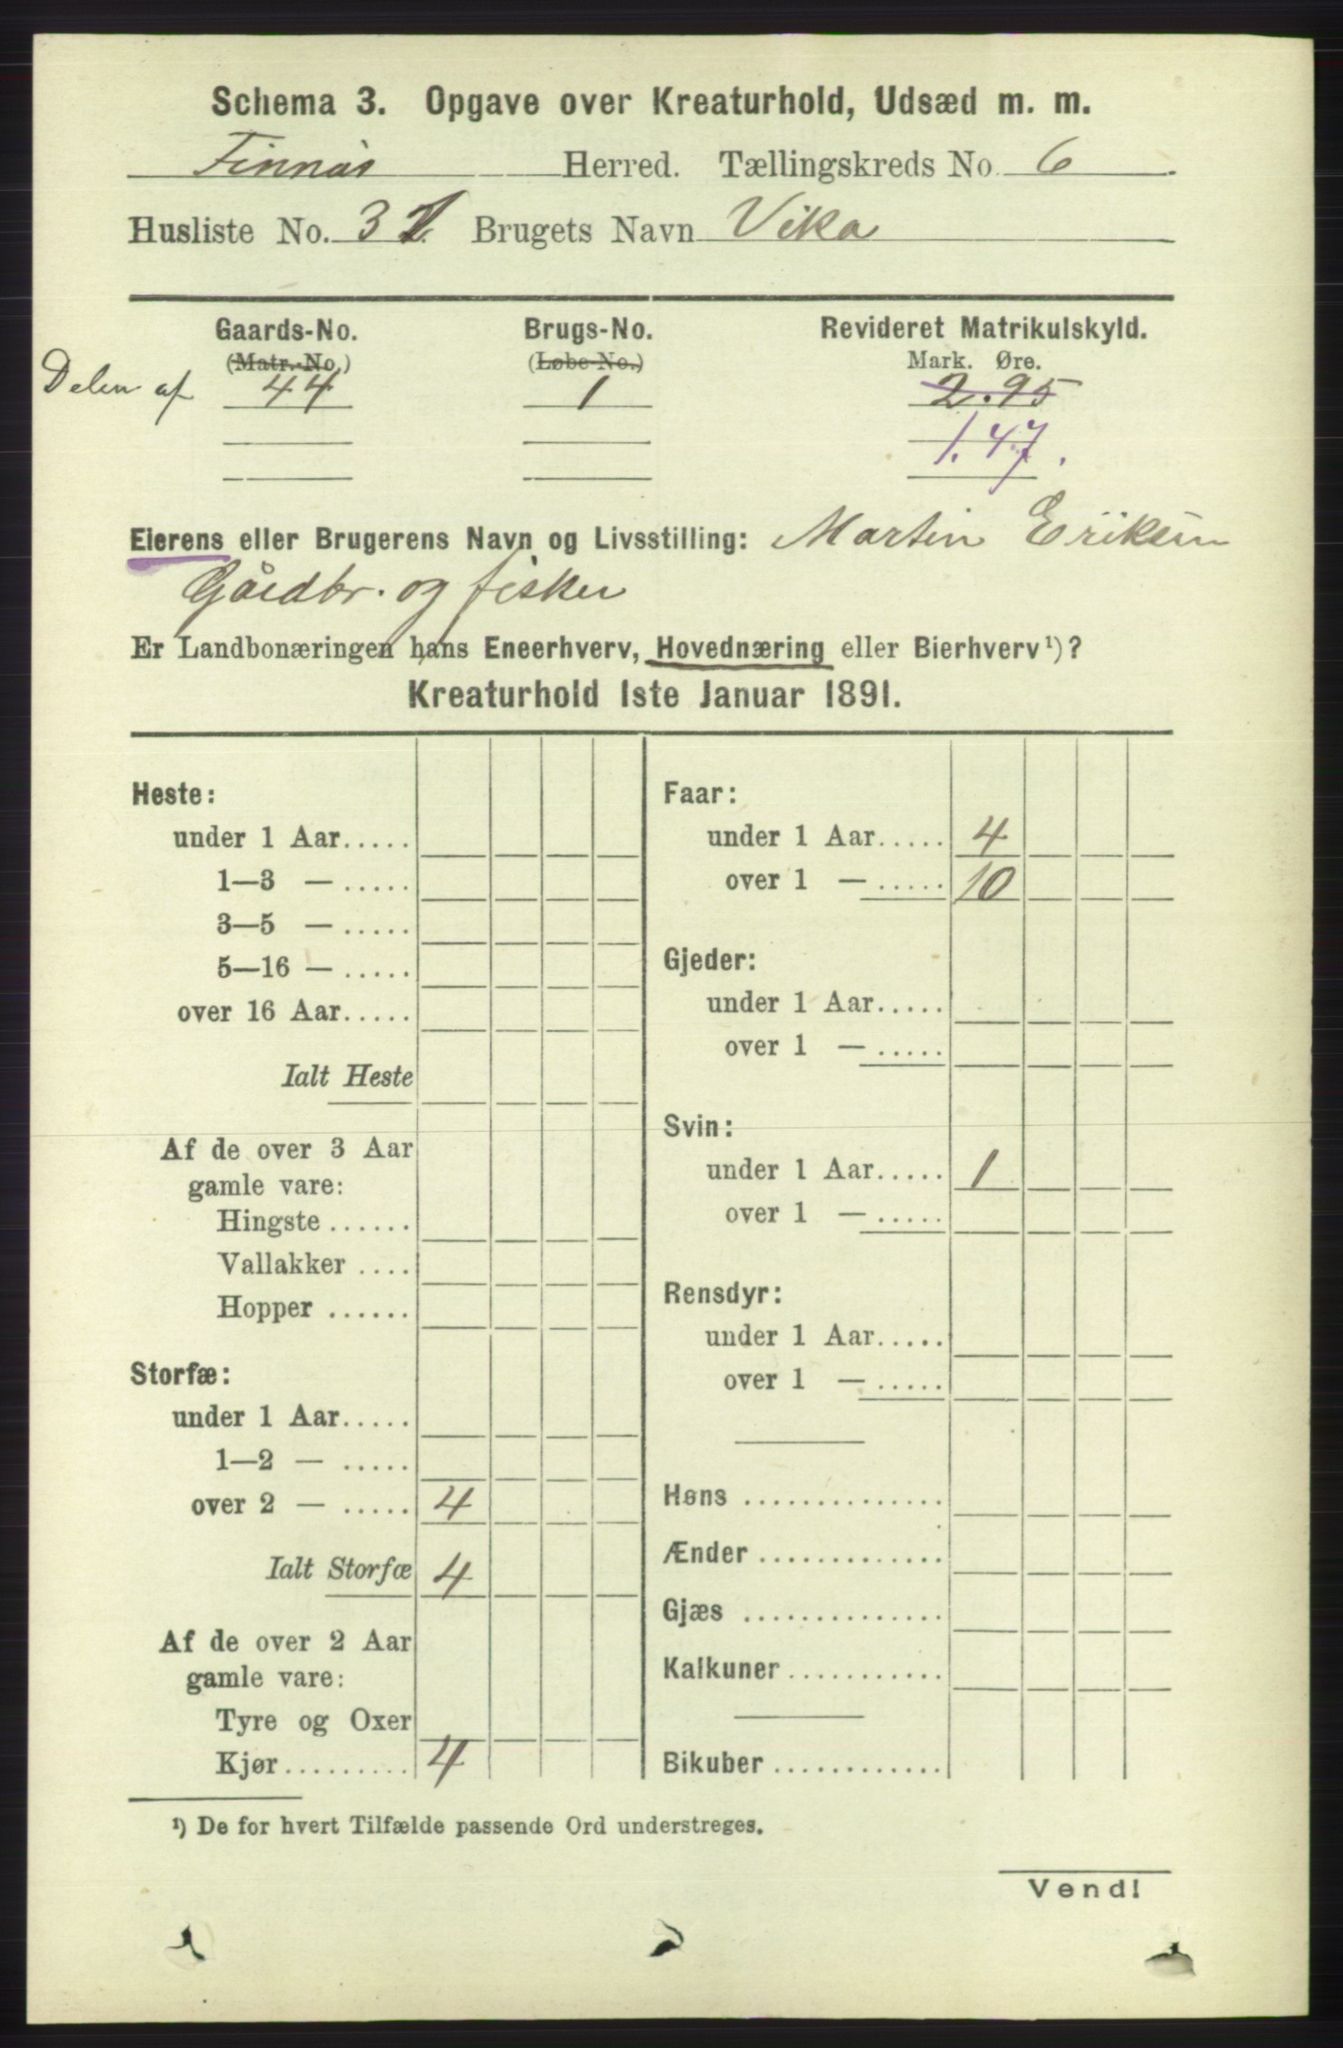 Schema 3. Opgave over Kreaturhold, Udsæd m. m.
Finnås Herred. Tællingskreds No. 6.
Husliste No. 3 Brugets Navn Vika
Gaards-No. Brugs-No. Revideret Matrikulskyld.
(Matr.-No.) (Løbe-No.) Mark. Øre.
Delen af 44 1 2.95
1.47.
Eierens eller Brugerens Navn og Livsstilling: Martin Eriksen
Gårdbr. og fisker
Er Landbonæringen hans Eneerhverv, Hovednæring eller Bierhverv¹)?
Kreaturhold 1ste Januar 1891.
Heste:
under 1 Aar.....
1—3 — .....
3—5 — .....
5—16 — .....
over 16 Aar.....
Ialt Heste
Af de over 3 Aar
gamle vare:
Hingste ......
Vallakker ....
Hopper ......
Storfæ:
under 1 Aar.....
1—2 — .....
over 2 — ..... 4
Ialt Storfæ 4
Af de over 2 Aar
gamle vare:
Tyre og Oxer
Kjør......... 4
Faar:
under 1 Aar..... 4
over 1 — ..... 10
Gjeder:
under 1 Aar.....
over 1 — .....
Svin:
under 1 Aar..... 1
over 1 — .....
Rensdyr:
under 1 Aar.....
over 1 — .....
Høns ..............
Ænder .............
Gjæs ..............
Kalkuner...........
Bikuber ............
¹) De for hvert Tilfælde passende Ord understreges.
Vend!